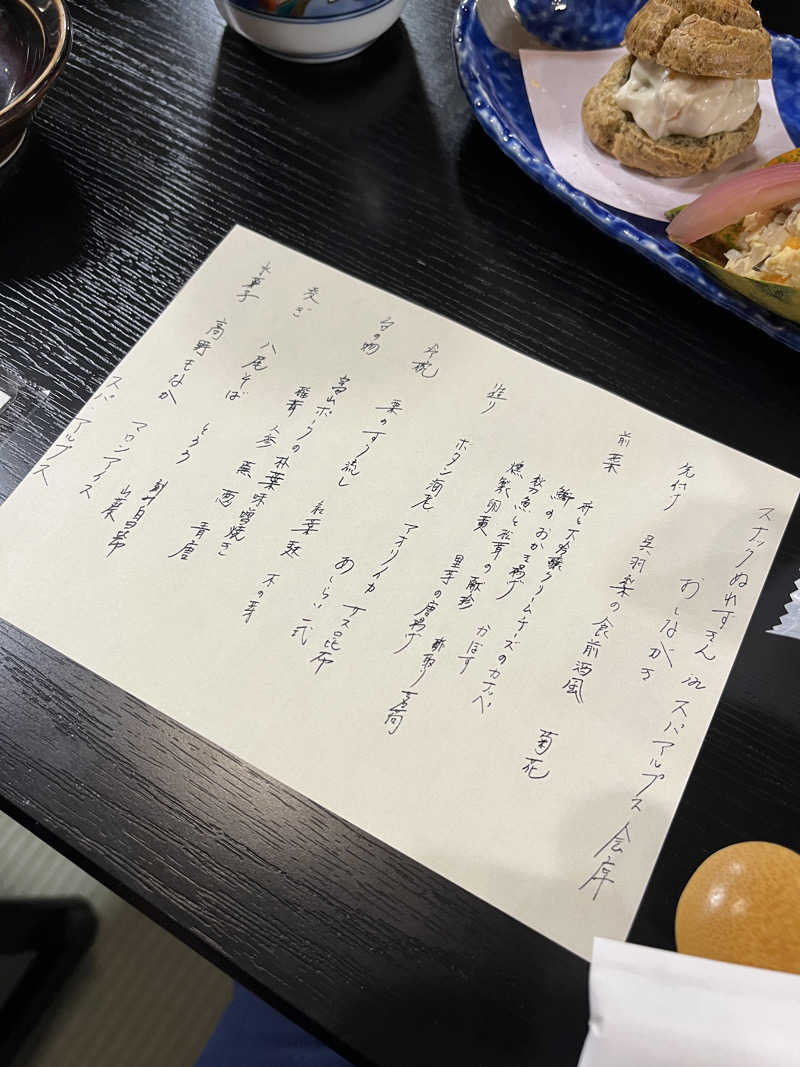 スナックぬれずきん in スパアルプス 会席
おしながき
先付け 呉羽梨の食前酒風 菊花
前菜
大吟醸クリームチーズのカナッペ
鰤のおかき揚げ かぼす
燻製卵黄 里芋の唐揚げ
造り ボタン海老 アオリイカ ヤズ昆布 あしらい一式
冷椀 栗のすり流し 紅葉麩 木の芽
台の物 富山ポークの朴葉味噌焼き
人参 葱 青唐
炙ぎ 八尾そば とろろ 山菜
水菓子 高野もなか マロンアイス
スパ・アルプス